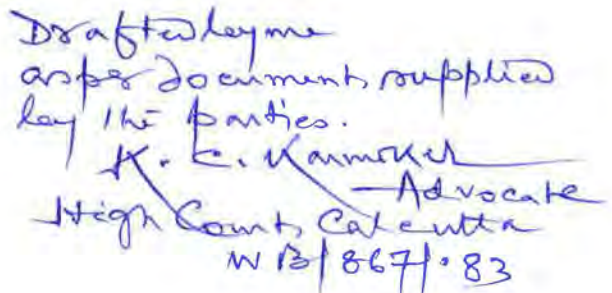 Drafted by me
as per documents supplied
by the parties.
K. C. Karmakar
Advocate
High Court, Calcutta
WB/867/83